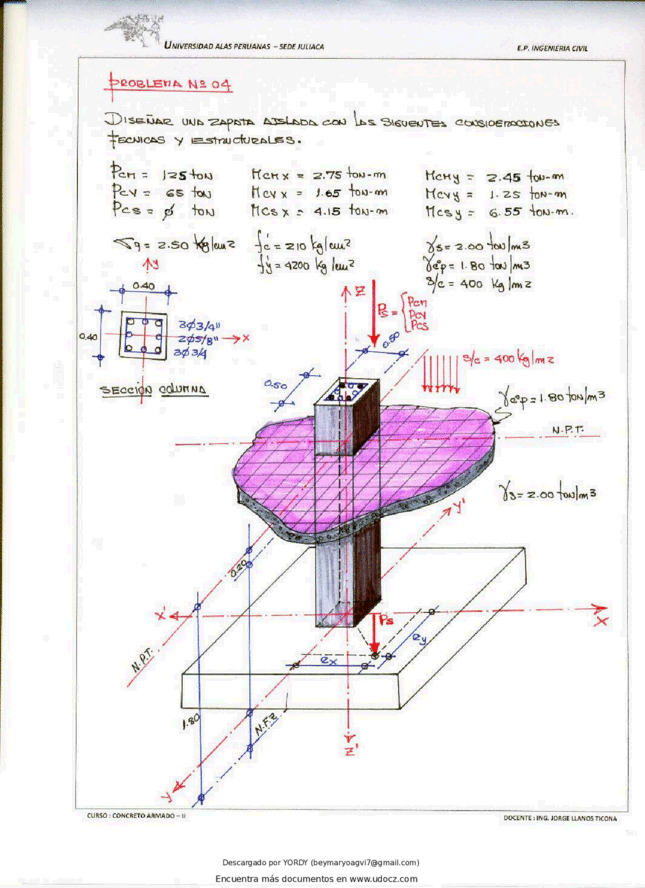 UNIVERSIDAD ALAS PERUANAS – SEDE JULIACA
E.P. INGENIERIA CIVIL
PROBLEMA Nº 04
DISEÑAR UNA ZAPATA AISLADA CON LAS SIGUENTES CONSIDERACIONES
TECNICAS Y ESTRUCTURALES.
Pcm = 125 TON
Mcmx = 2.75 TON-m
Mcmy = 2.45 TON-m
Pcv = 65 TON
Mcvx = 1.65 TON-m
Mcvy = 1.25 TON-m
Pcs = ϕ TON
Mcsx = 4.15 TON-m
Mcsy = 6.55 TON-m.
f'c = 210 kg/cm2
γs = 2.00 TON/m3
= 2.50 kg/cm2
f'y = 4200 kg/cm2
γc°p = 1.80 TON/m3
s/c = 400 kg/m2
y
0.40
0.40
3Ø3/4"
2Ø5/8"
3Ø3/4
x
SECCION COLUMNA
z
Ps =
Pcm
Pcv
Pcs
0.50
0.50
s/c = 400 kg/m2
γc°p = 1.80 TON/m3
N.P.T.
γs = 2.00 TON/m3
y'
0.20
x'
Ps
x
ex
ey
N.P.T.
1.80
N.F.Z.
z'
y
CURSO : CONCRETO ARMADO – II
DOCENTE : ING. JORGE LLANOS TICONA
Descargado por YORDY (beymaryoagvi7@gmail.com)
Encuentra más documentos en www.udocz.com